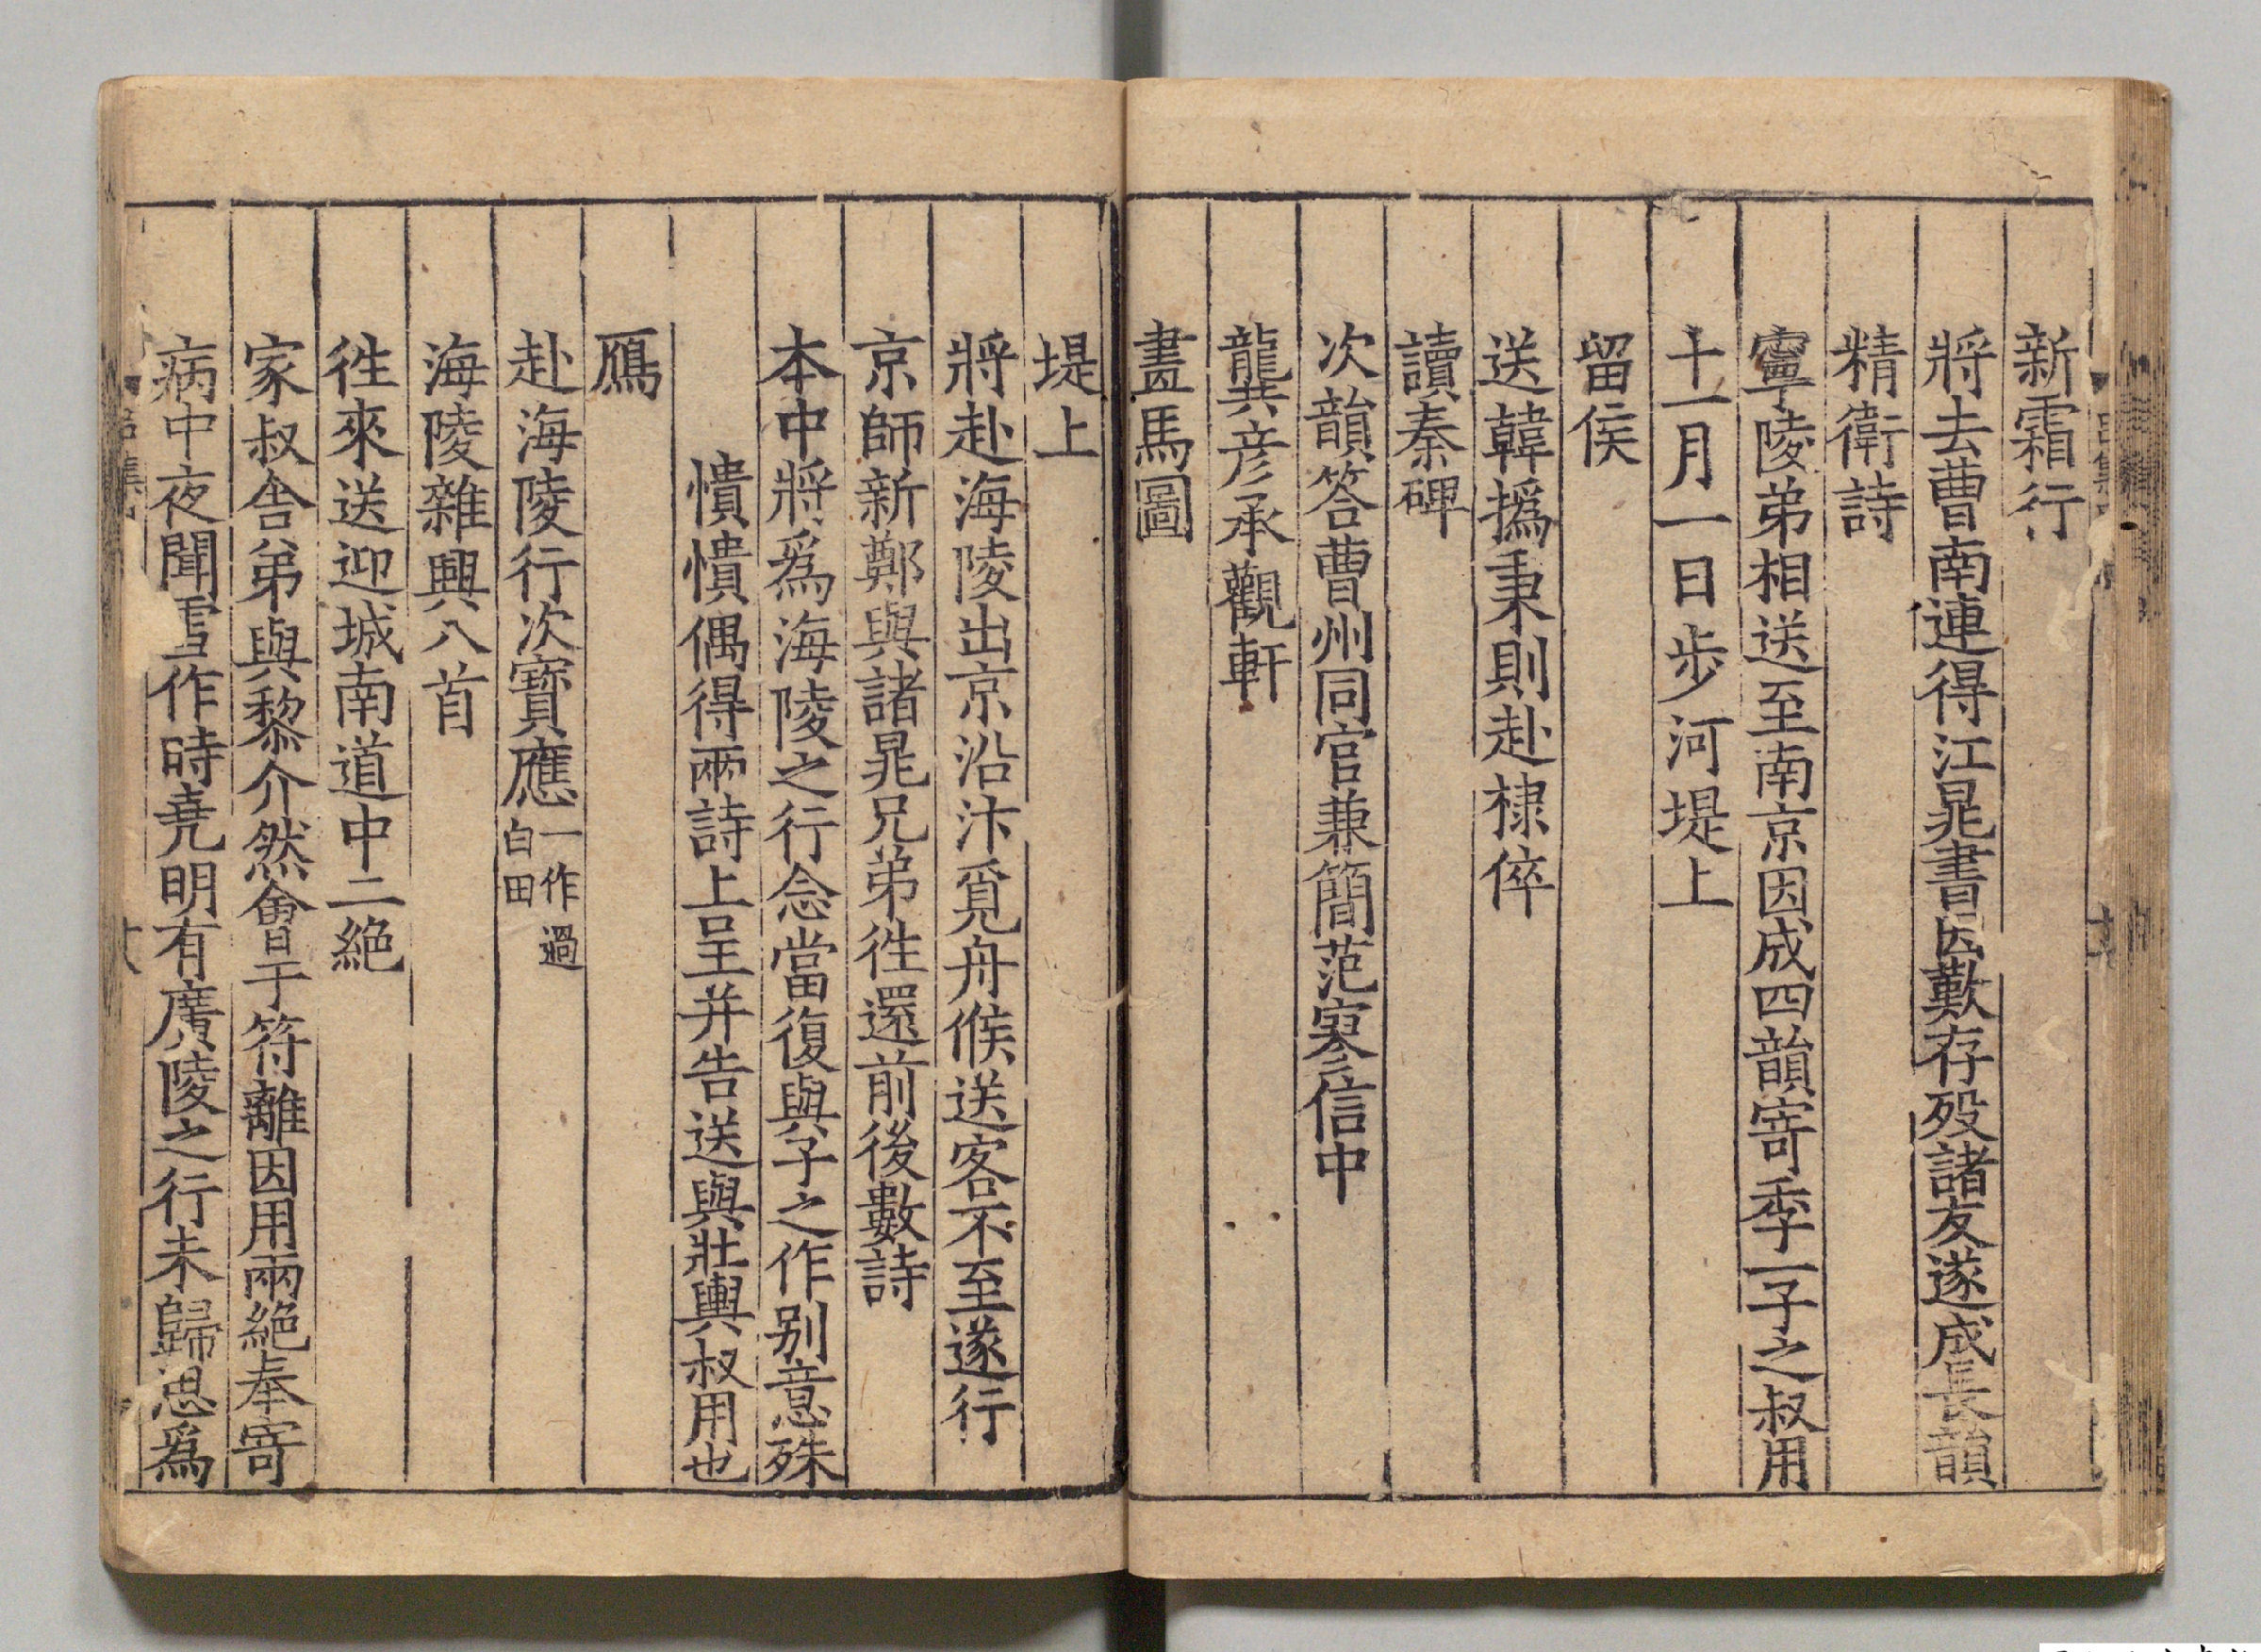 新霜行
將去曹南連得江晁書因歎存歿諸友遂成長韻
精衛詩
寧陵弟相送至南京因成四韻寄季一子之叔用
十一月一日步河堤上
留侯
送韓撝秉則赴棣倅
讀秦碑
次韻答曹州同官兼簡范寥信中
龔彦承觀軒
畫馬圖
堤上
將赴海陵出京沿汴覓舟候送客不至遂行
京師新鄭與諸晁兄弟徃還前後數詩
本中將爲海陵之行念當復與子之作别意殊
憒憒偶得兩詩上呈并告送與壯輿叔用也
鴈
赴海陵行次寶應一作過
白田
海陵雜興八首
徃來送迎城南道中二絶
家叔舍弟與黎介然會于符離因用兩絶奉寄
病中夜聞雪作時堯明有廣陵之行未歸思爲